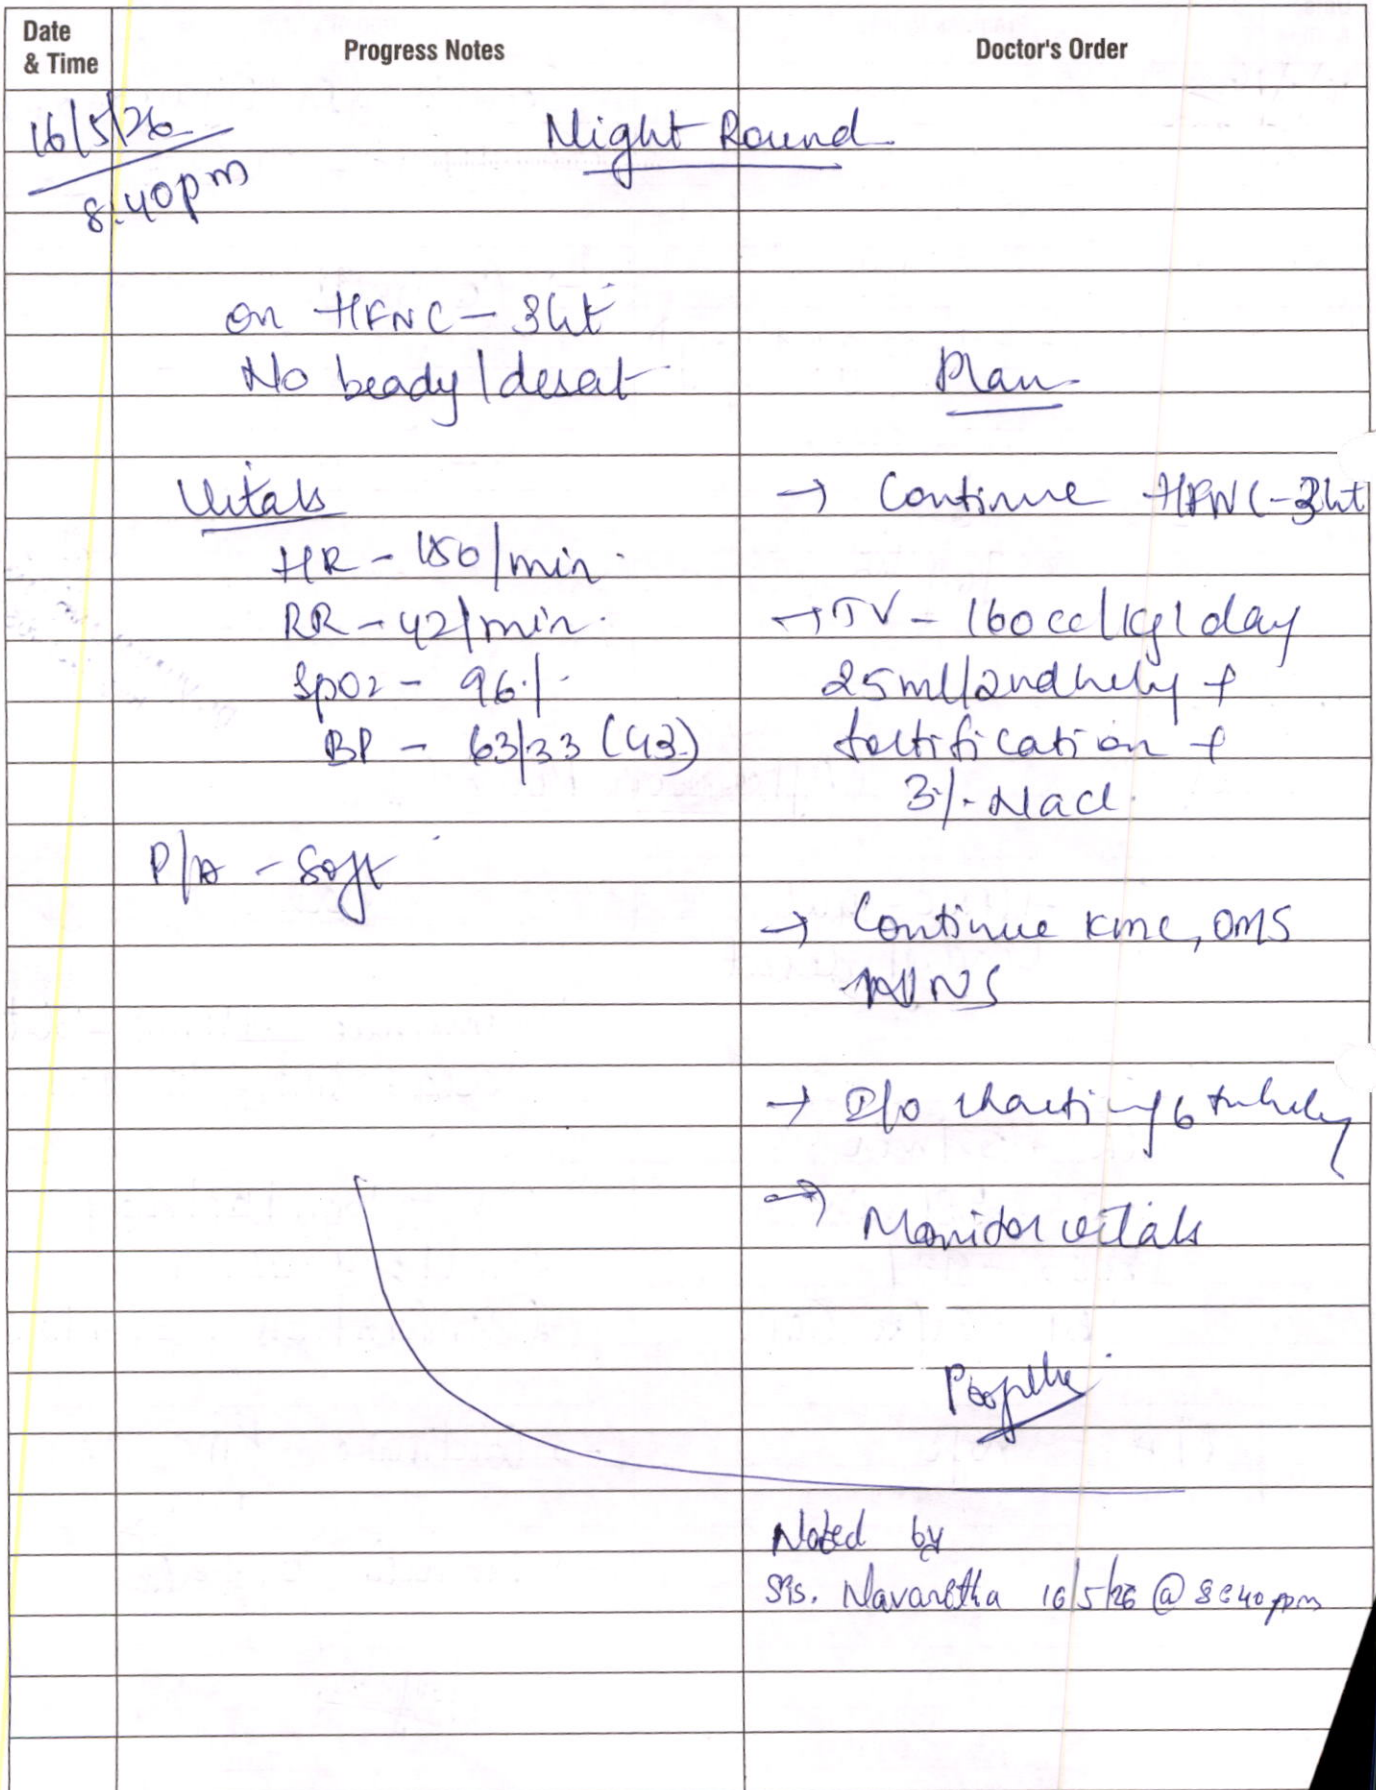 Date & Time
Progress Notes
Doctor's Order
16/5/26
8:40pm
Night Round
on HFNC - 3lit
No brady/desat
Plan
Vitals
→ Continue HFNC - 3lit
HR - 150/min
RR - 42/min.
→ TV - 160cc/kg/day
SpO2 - 96%
25ml/2ndhrly +
BP - 63/33 (43)
fortification +
3% NaCl
P/A - Soft
→ Continue KMC, OMS
NNS
→ I/O charting 6thhrly
→ Monitor vitals
Noted by
Sis. Navanitha 16/5/26 @ 8:40pm